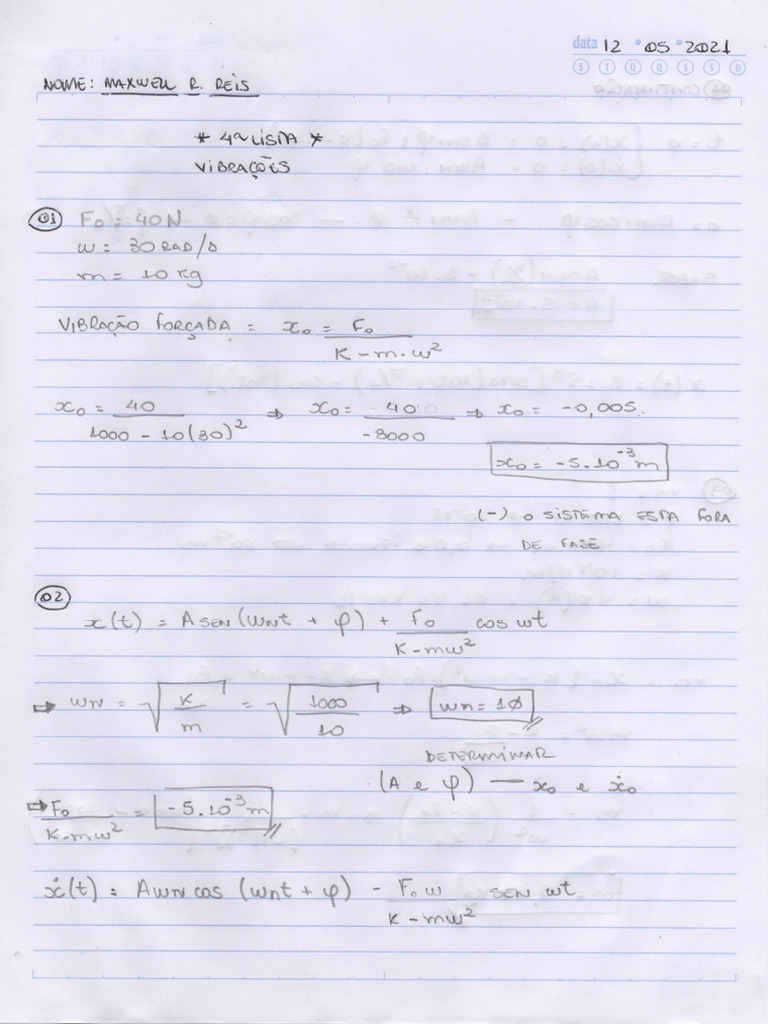 data 12 05 2021
S T Q Q S S D
NOME: MAXWELL R. REIS
* 4ª LISTA *
VIBRAÇÕES
01 F0 = 40 N
w = 30 RAD/s
m = 10 kg
VIBRAÇÃO FORÇADA = x0 = F0 / (K - m·w²)
x0 = 40 / (1000 - 10(30)²) ⇒ x0 = 40 / -8000 ⇒ x0 = -0,005.
x0 = -5.10⁻³ m
(-) O SISTEMA ESTA FORA
DE FASE
02
x(t) = A SEN (wnt + φ) + F0 / (K - mw²) cos wt
⇒ wn = √(K / m) = √(1000 / 10) ⇒ wn = 10
DETERMINAR
(A e φ) — x0 e ẋ0
⇒ F0 / (K - mw²) = -5.10⁻³ m
ẋ(t) = Awn cos (wnt + φ) - F0 w / (K - mw²) SEN wt